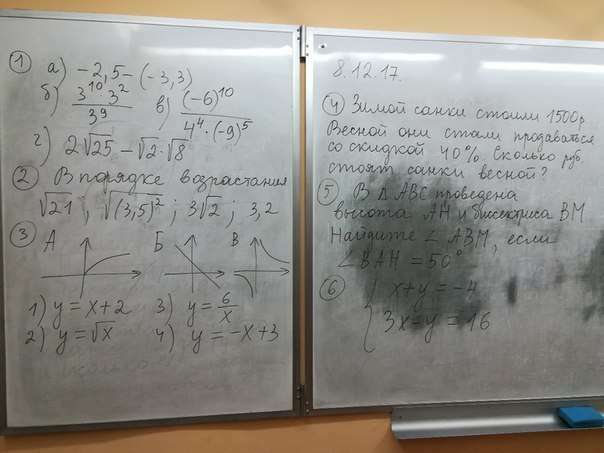 ① а) −2,5 − (−3,3)
б) 3^10 · 3^2 / 3^9 в) (−6)^10 / 4^4 · (−9)^5
г) 2√25 − √2 · √8
② В порядке возрастания
√21 ; √(3,5)^2 ; 3√2 ; 3,2
③ А Б В
1) y = x + 2 3) y = 6/x
2) y = √x 4) y = −x + 3
8.12.17.
④ Зимой санки стоили 1500р
Весной они стали продаваться
со скидкой 40%. Сколько руб
стоят санки весной?
⑤ В Δ ABC проведена
высота AH и биссектриса BM
Найдите ∠ ABM, если
∠ BAH = 50°
⑥ { x + y = −4
3x − y = 16